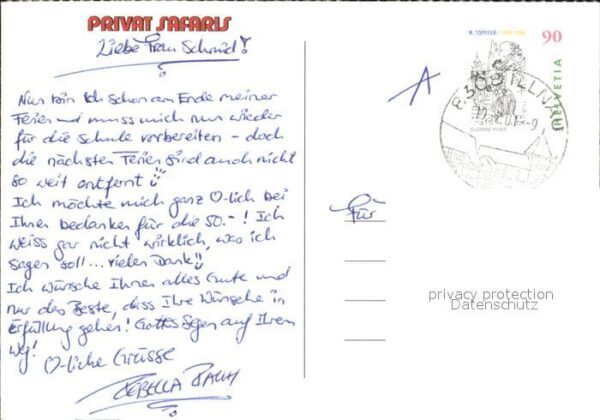 PRIVAT SAFARIS
Liebe Frau Schmid!
Nun bin ich schon am Ende meiner
Ferien und muss mich nun wieder
für die Schule vorbereiten - doch
die nächsten Ferien sind auch nicht
so weit entfernt!
Ich möchte mich ganz O-lich bei
Ihnen bedanken für die 50.-! Ich
weiss gar nicht wirklich, was ich
sagen soll... vielen Dank!!
Ich wünsche Ihnen alles Gute und
nur das Beste, dass Ihre Wünsche in
Erfüllung gehen! Gottes Segen auf Ihrem
Weg!
O-liche Grüsse
R. TÖPFFER
90
HELVETIA
A
Für
privacy protection
Datenschutz